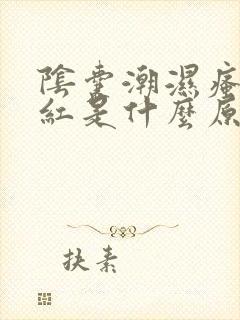 陰囊潮濕瘙
紅是什麼原
抉素